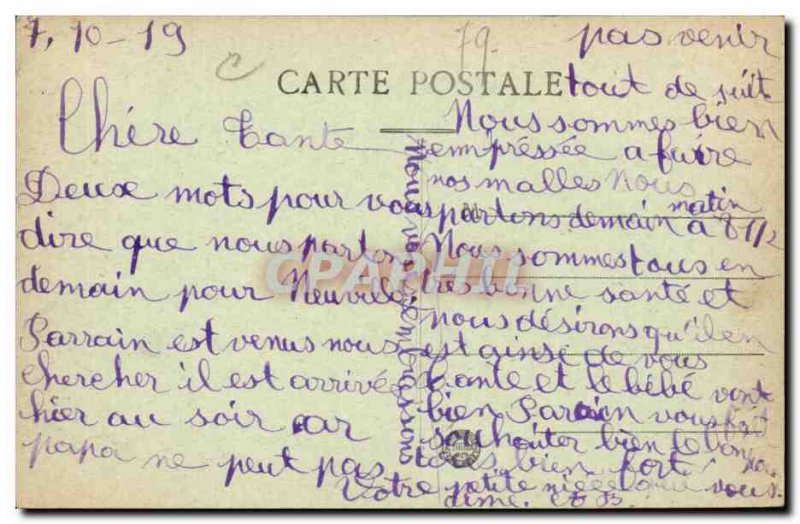 7, 10-19
79.
CARTE POSTALE
Chére Tante
Deuxe mots pour vous
dire que nous partons
demain pour Neuville
Parrain est venus nous
chercher il est arrivée
hier au soir car
papa ne peut pas
pas venir
tout de suite
Nous sommes bien
empréssée a faire
nos malles Nous
partons demain matin à 8 1/2
Nous sommes tous en
très bonne santé et
nous désirons qu'il en
est ainse de vous
tante et le bébé vont
bien Parrain vous fait
souhaiter bien le bonj
Nous vous embrassons
tous bien fort
Votre petite niece qui vous
aime.
CPAPHIL